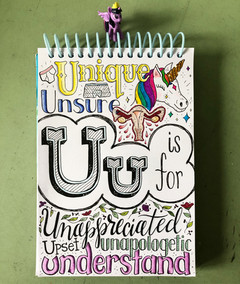 Unique
Unsure
Uu is
for
Unappreciated
Upset unapologetic
understand